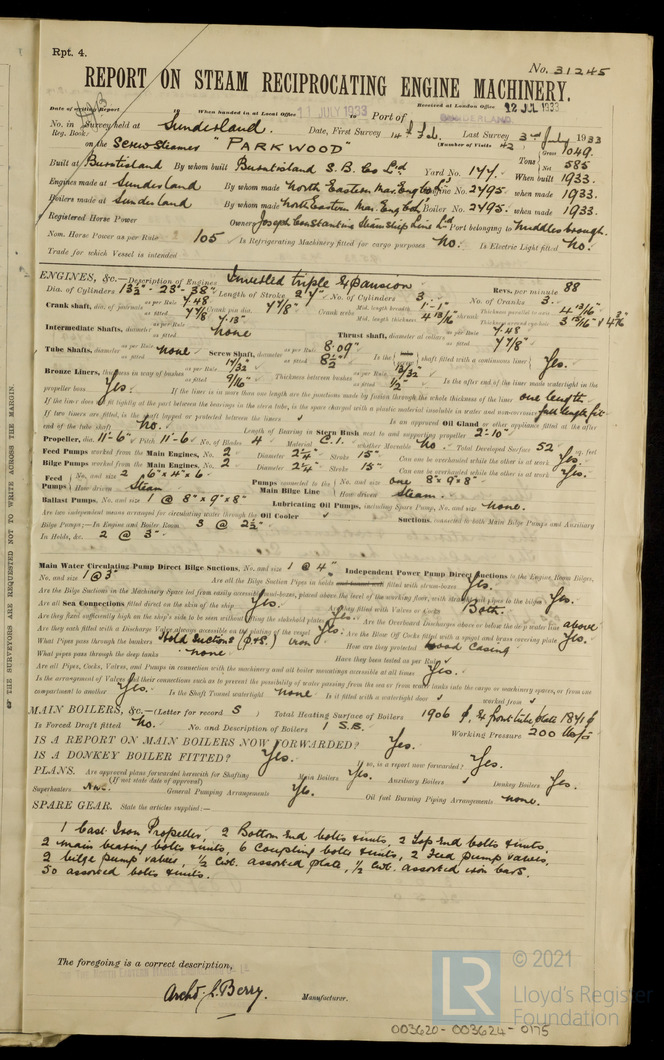 Rpt. 4.
No. 31245
REPORT ON STEAM RECIPROCATING ENGINE MACHINERY.
Date of writing Report When handed in at Local Office 11 JULY 1933 Port of SUNDERLAND. Received at London Office 12 JUL 1933
No. in Reg. Book. Survey held at Sunderland. Date, First Survey 14th Feb. Last Survey 3rd July 1933
(Number of Visits 42)
on the Screw Steamer "PARKWOOD" Tons Gross 1049. Net 585
Built at Burntisland By whom built Burntisland S.B. Co Ld Yard No. 174. When built 1933.
Engines made at Sunderland By whom made North Eastern Mar. Eng Co Ld Engine No. 2495. when made 1933.
Boilers made at Sunderland By whom made North Eastern Mar. Eng Co Ld Boiler No. 2495. when made 1933.
Registered Horse Power Owners Joseph Constantine Steam Ship Line Ld Port belonging to Middlesbrough.
Nom. Horse Power as per Rule 105 Is Refrigerating Machinery fitted for cargo purposes No. Is Electric Light fitted No.
Trade for which Vessel is intended
ENGINES, &c.—Description of Engines Inverted triple Expansion Revs. per minute 88
Dia. of Cylinders 13½"- 23"- 38" Length of Stroke 27" No. of Cylinders 3. No. of Cranks 3.
Crank shaft, dia. of journals as per Rule 7.48 as fitted 7⅞" Crank pin dia. 7⅞" Crank webs Mid. length breadth 1'-1" Mid. length thickness 4 13/16" shrunk Thickness parallel to axis 4 13/16"
Intermediate Shafts, diameter as per Rule 7.13" as fitted none Thrust shaft, diameter at collars as per Rule 7.48 as fitted 7⅞"
Tube Shafts, diameter as per Rule as fitted none Screw Shaft, diameter as per Rule 8.09" as fitted 8½" Is the shaft fitted with a continuous liner Yes.
Bronze Liners, thickness in way of bushes as per Rule 17/32" as fitted 9/16" Thickness between bushes as per Rule 13/32" as fitted ½" Is the after end of the liner made watertight in the
propeller boss Yes. If the liner is in more than one length are the joints made by fusion through the whole thickness of the liner one length.
If the liner does not fit tightly at the part between the bearings in the stern tube, is the space charged with a plastic material insoluble in water and non-corrosive full length fit.
If two liners are fitted, is the shaft lapped or protected between the liners Is an approved Oil Gland or other appliance fitted at the after
end of the tube shaft No. Length of Bearing in Stern Bush next to and supporting propeller 2'-10"
Propeller, dia. 11'-6" Pitch 11'-6 No. of Blades 4 Material C.I. whether Moveable No. Total Developed Surface 52 sq. feet
Feed Pumps worked from the Main Engines, No. 2 Diameter 2¼" Stroke 15" Can one be overhauled while the other is at work Yes.
Bilge Pumps worked from the Main Engines, No. 2 Diameter 2¼" Stroke 15" Can one be overhauled while the other is at work Yes.
Feed Pumps No. and size 2 6"x4"x6" How driven Steam Pumps connected to the Main Bilge Line No. and size one 8"x9"x8" How driven Steam.
Ballast Pumps, No. and size 1 @ 8"x9"x8" Lubricating Oil Pumps, including Spare Pump, No. and size none.
Are two independent means arranged for circulating water through the Oil Cooler Suctions, connected to both Main Bilge Pumps and Auxiliary
Bilge Pumps;—In Engine and Boiler Room 3 @ 2½"
In Holds, &c. 2 @ 3"
Main Water Circulating Pump Direct Bilge Suctions, No. and size 1 @ 4" Independent Power Pump Direct Suctions to the Engine Room Bilges,
No. and size 1 @ 3" Are all the Bilge Suction Pipes in holds fitted with strum-boxes Yes.
Are the Bilge Suctions in the Machinery Space led from easily accessible mud-boxes, placed above the level of the working floor, with straight tail pipes to the bilges Yes.
Are all Sea Connections fitted direct on the skin of the ship Yes. Are they fitted with Valves or Cocks Both.
Are they fixed sufficiently high on the ship's side to be seen without lifting the stokehold plates Yes. Are the Overboard Discharges above or below the deep water line above
Are they each fitted with a Discharge Valve always accessible on the plating of the vessel Yes. Are the Blow Off Cocks fitted with a spigot and brass covering plate Yes.
What Pipes pass through the bunkers Hold suctions (P&S) iron How are they protected Wood Casing
What pipes pass through the deep tanks none Have they been tested as per Rule
Are all Pipes, Cocks, Valves, and Pumps in connection with the machinery and all boiler mountings accessible at all times Yes.
Is the arrangement of Valves and their connections such as to prevent the possibility of water passing from the sea or from water tanks into the cargo or machinery spaces, or from one
compartment to another Yes. Is the Shaft Tunnel watertight none Is it fitted with a watertight door worked from
MAIN BOILERS, &c.—(Letter for record S) Total Heating Surface of Boilers 1906 ϕ, Ex front tube plate 1841 ϕ
Is Forced Draft fitted No. No. and Description of Boilers 1 S.B. Working Pressure 200 lbs/□"
IS A REPORT ON MAIN BOILERS NOW FORWARDED? Yes.
IS A DONKEY BOILER FITTED? Yes. If so, is a report now forwarded? Yes.
PLANS. Are approved plans forwarded herewith for Shafting Main Boilers Yes. Auxiliary Boilers Donkey Boilers Yes.
(If not state date of approval)
Superheaters General Pumping Arrangements Yes. Oil fuel Burning Piping Arrangements none.
SPARE GEAR. State the articles supplied:—
1 Cast Iron Propeller, 2 Bottom End bolts & nuts, 2 Top End bolts & nuts.
2 main bearing bolts & nuts, 6 Coupling bolts & nuts, 2 Feed pump valves,
2 bilge pump valves, ½ Cwt. assorted plate, ½ Cwt. assorted iron bars.
50 assorted bolts & nuts.
The foregoing is a correct description,
Archd. L. Berry. Manufacturer.
THE SURVEYORS ARE REQUESTED NOT TO WRITE ACROSS THE MARGIN.
LR © 2021
Lloyd's Register
Foundation
003620-003624-0175